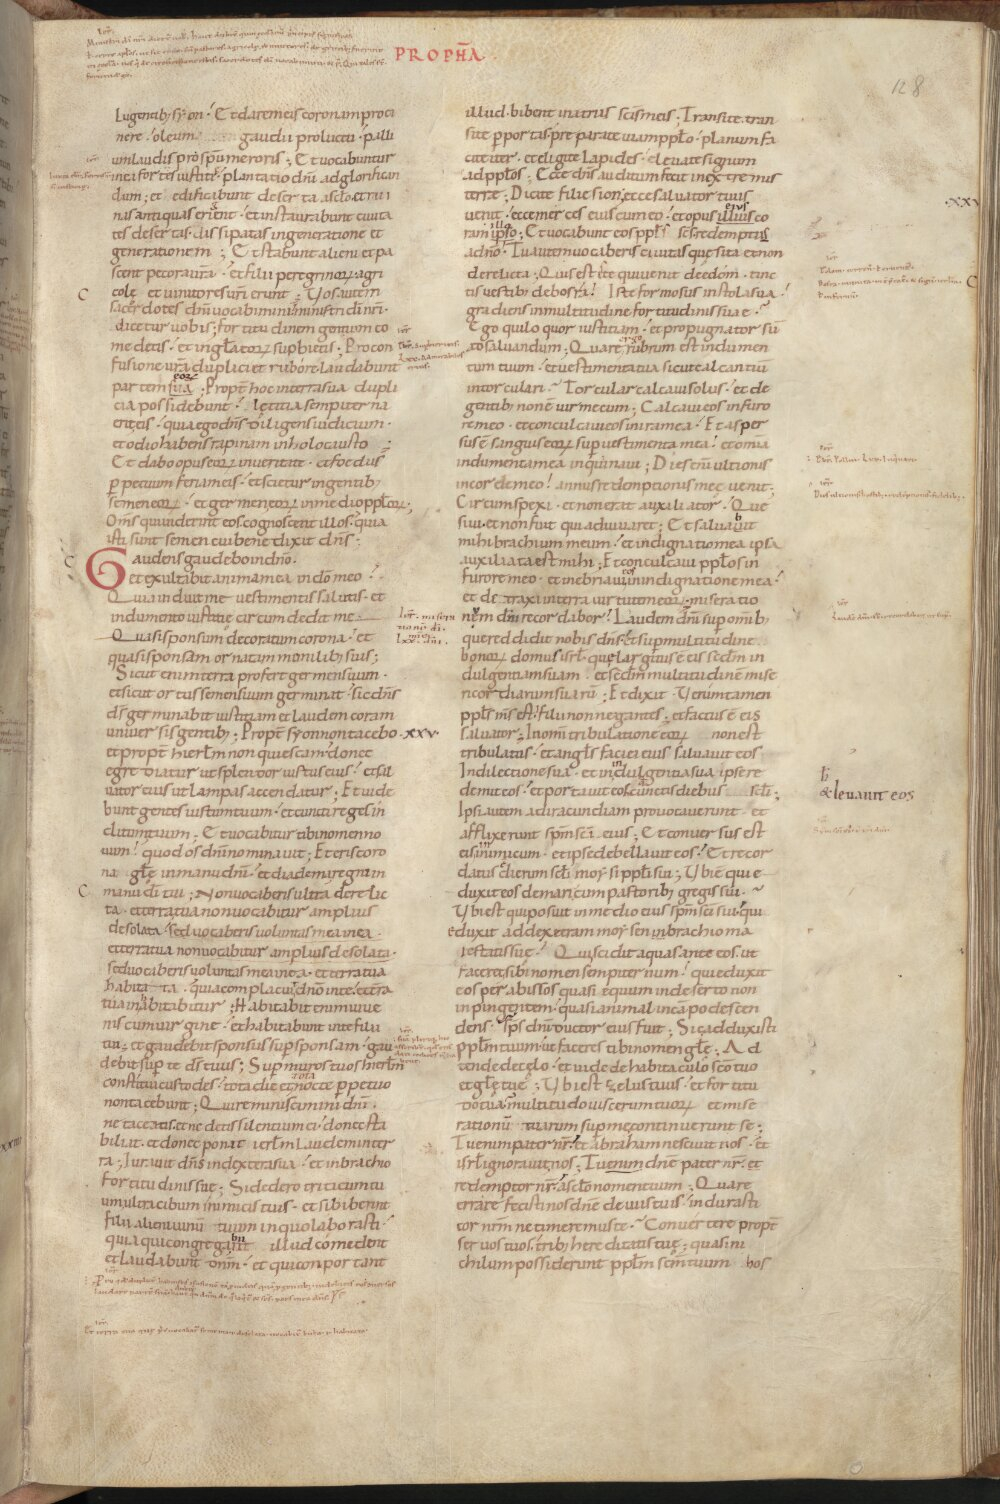 PROPHA
128
Lugentib; syon . Et darem eis coronam pro ci
nere . oleum gaudii pro luctu . palli
um laudis pro spu meroris ; Et vocabuntur
in ea fortes iustitie . plantatio dni ad glorifican
dum ; et edificabunt deserta a sclo . et rui
nas antiquas erient . et instaurabunt civita
tes desertas . dissipatas in generatione et
generationem ; Et stabunt alieni et pa
scent pecora vra . et filii peregrinor agri
cole et vinitores vri erunt . Vos autem
sacerdotes dni vocabimini . ministri di nri .
dicetur vobis ; fortitudinem gentium co
medetis . et in gla eor supbietis ; Pro con
fusione vra duplici et rubore laudabunt
partem sua ; Propt hoc in terra sua dupli
cia possidebunt . letitia sempiterna
erit eis . quia ego dns diligens iudicium .
et odio habens rapinam in holocausto ;
Et dabo opus eor in veritate . et foedus
ppetuum feriam eis . et scietur in gentib;
semen eor . et germen eor in medio pplor ;
Oms qui viderint eos cognoscent illos . quia
isti sunt semen cui benedixit dns ;
Gaudens gaudebo in dno .
et exultabit anima mea in do meo .
Quia induit me vestimentis salutis . et
indumento iustitie circumdedit me .
Quasi sponsum decoratum corona . et
quasi sponsam ornatam monilib; suis ;
Sicut enim terra profert germen suum .
et sicut ortus semen suum germinat . sic dns
ds germinabit iustitiam et laudem coram
universis gentib; ; Propt syon non tacebo . XXV .
et propt hierlm non quiescam . donec
egrediatur ut splendor iustus eius . et sal
vator eius ut lampas accendatur ; Et vide
bunt gentes iustum tuum . et cuncti reges in
clitum tuum . Et vocabitur tibi nomen no
vum . quod os dni nominavit ; Et eris coro
na gle in manu dni . et diadema regni in
manu di tui ; Non vocaberis ultra derelic
ta . et terra tua non vocabitur amplius
desolata . sed vocaberis voluntas mea in ea .
et terra tua non vocabitur amplius desolata .
sed vocaberis voluntas mea in ea . et terra tua
habita ta . quia complacuit dno in te . et terra
tua inhabitabitur ; Habitabit enim iuve
nis cum virgine . et habitabunt in te filii
tui . et gaudebit sponsus sup sponsam . gau
debit sup te ds tuus ; Sup muros tuos hierlm
constitui custodes . tota die et nocte ppetuo
non tacebunt ; Qui reminiscimini dni .
ne taceatis . et ne detis silentium ei . donec sta
biliat . et donec ponat ierlm laudem in ter
ra ; Iuravit dns in dextera sua . et in brachio
fortitudinis sue ; Si dedero triticum tu
um ultra cibum inimicis tuis . et si biberint
filii alieni vinum tuum in quo laborasti .
quia qui congregant illud comedent
et laudabunt dnm . et qui comportant
illud . bibent in atriis scis meis ; Transite tran
site p portas . preparate viam pplo . planum fa
cite iter . et eligite lapides . elevate signum
ad pplos ; Ecce dns auditum fecit in extremis
terre ; Dicite filie sion . ecce salvator tuus
venit . ecce merces eius cum eo . et opus illius co
ram ipso ; Et vocabunt eos ppls scs redemptus
a dno . Tu autem vocaberis civitas quesita et non
derelicta ; Quis est iste qui venit de edom . tinc
tis vestib; de bosra ! Iste formosus in stola sua .
gradiens in multitudine fortitudinis sue .
Ego qui loquor iustitiam . et propugnator su
ad salvandum ; Quare rubrum est indumen
tum tuum . et vestimenta tua sicut calcantiu
in torculari . Torcular calcavi solus . et de
gentib; non e vir mecum ; Calcavi eos in furo
re meo . et conculcavi eos in ira mea . Et asper
sus e sanguis eor sup vestimenta mea ! et omia
indumenta mea inquinavi ; Dies em ultionis
in corde meo ! annus redemptionis mee venit ;
Circumspexi . et non erat auxiliator . Que
sivi . et non fuit qui adiuvaret ; Et salvavit
mihi brachium meum . et indignatio mea ipsa
auxiliata est mihi ; Et conculcavi pplos in
furore meo . et inebriavi in indignatione mea .
et detraxi in terra virtutem eor ; miseratio
nem dni recordabor ! Laudem dni sup omib;
que reddidit nobis dns . et sup multitudine
bonor domus isrl . que largitus e eis scdm in
dulgentiam suam . et scdm multitudinem mise
ricordiarum suaru ; Et dixit . Verumtamen
ppls ms est ! filii non negantes ; et factus e eis
salvator . In omi tribulatione eor non est
tribulatus . et angls faciei eius salvavit eos
In dilectione sua . et in indulgentia sua ipse re
demit eos . et portavit eos cunctis diebus scli ;
Ipsi autem ad iracundiam provocaverunt . et
afflixerunt spm sci eius ; Et conversus est
eis in inimicum . et ipse debellavit eos . Et recor
datus dierum scli moysi et ppli sui ; Ubi e qui e
duxit eos de mari . cum pastorib; gregis sui .
Ubi est qui posuit in medio eius spm sci sui . qui
eduxit ad dexteram moysen in brachio ma
iestatis sue . Qui scidit aquas ante eos . ut
faceret sibi nomen sempiternum . qui eduxit
eos per abissos quasi equum in deserto non
inpingentem . quasi animal in capo descen
dens . sps dni ductor eius fuit ; Sic adduxisti
pplm tuum . ut faceres tibi nomen gle ; Ad
tende de celo . et vide de habitaculo sco tuo
et gle tue ; Ubi est zelus tuus . et fortitu
do tua . multitudo viscerum tuor et mise
rationu tuarum sup me continuerunt se ;
Tu enim pater nr . et abraham nescivit nos . et
isrl ignoravit nos ; Tu enim dne pater nr . et
redemptor nr . a sclo nomen tuum . Quare
errare fecisti nos dne de viis tuis . indurasti
cor nrm ne timeremus te . Convertere propt
servos tuos . trib; hereditatis tue ; quasi ni
chilum possiderunt pplm scm tuum hos
& levavit eos